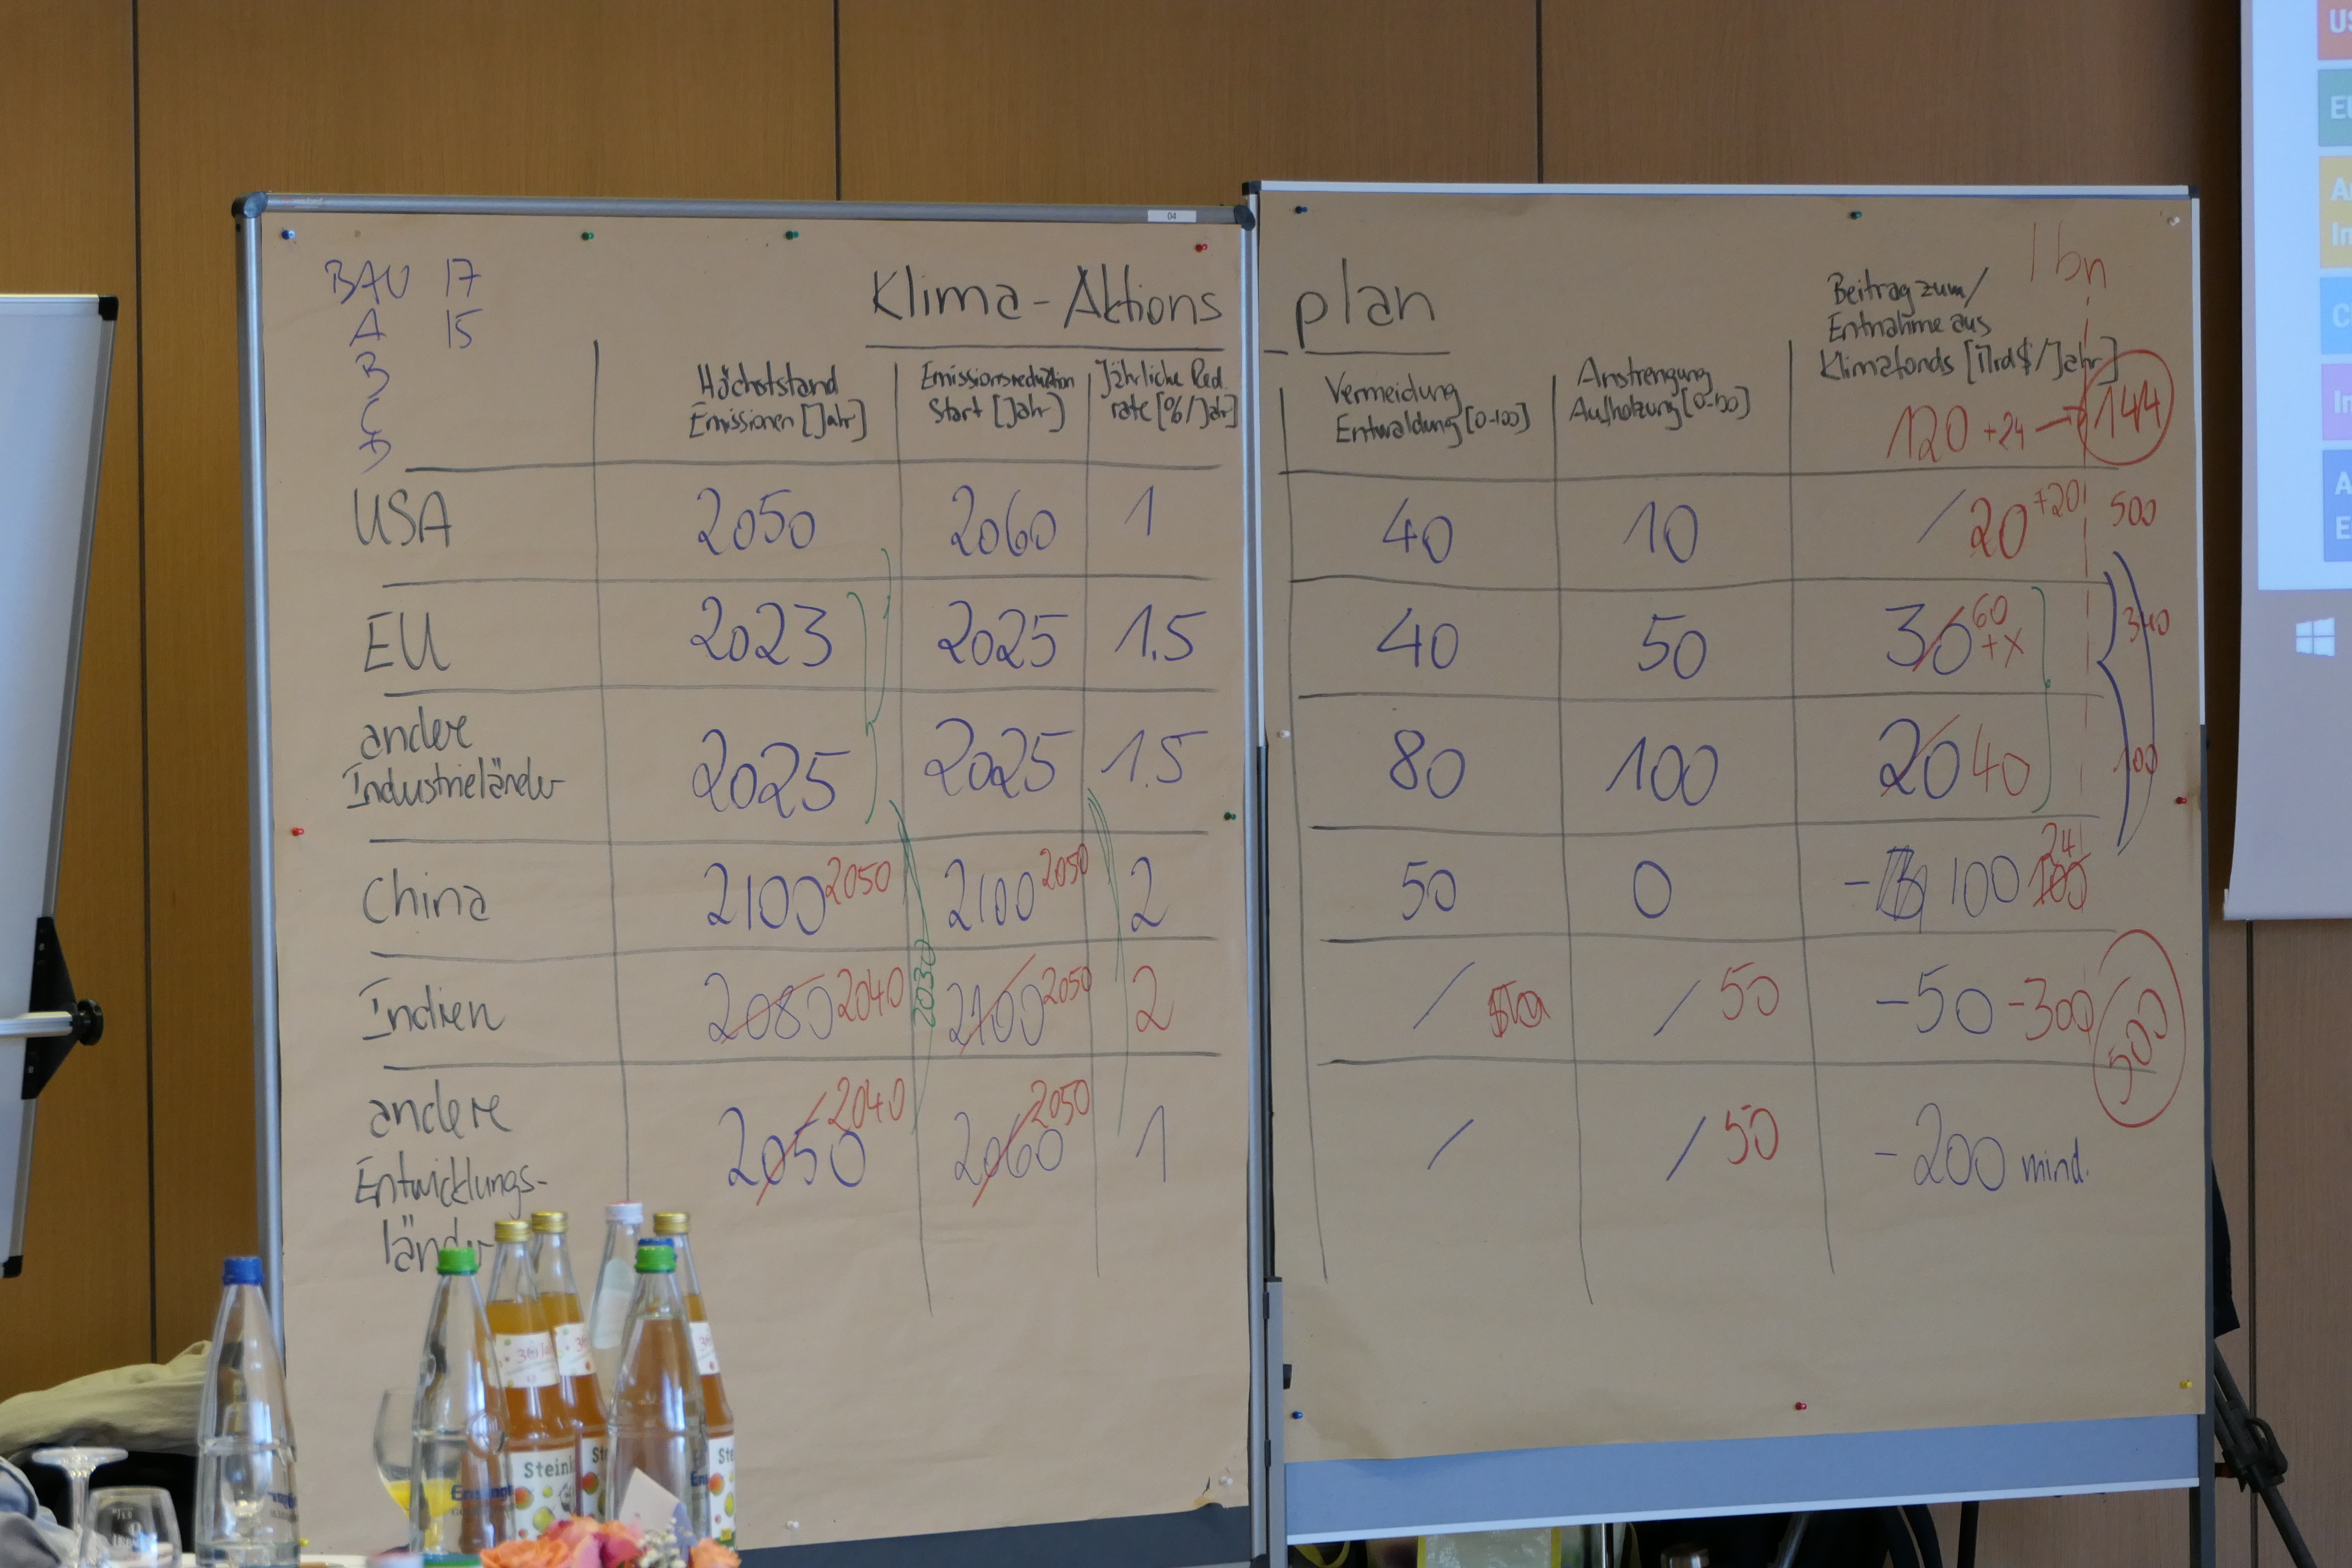 04
BAU 17
A 15
B
C
D
Klima-Aktions plan
1 bn
Höchststand Emissionen [Jahr]
Emissionsreduktion Start [Jahr]
Jährliche Red. rate [%/Jahr]
Vermeidung Entwaldung [0-100]
Anstrengung Aufholzung [0-100]
Beitrag zum/ Entnahme aus Klimafonds [Mrd $/Jahr]
120 +24 → 144
USA 2050 2060 1 40 10 / 20 +20 500
EU 2023 2025 1.5 40 50 30 60 +x 340
andere Industrieländer 2025 2025 1.5 80 100 20 40 100
China 2100 2050 2100 2050 2 50 0 - 100 100 24
Indien 2080 2040 2030 2100 2050 2 / / 50 -50 -300 500
andere Entwicklungs-
länder 2050 2040 2060 2050 1 / / 50 -200 mind.
US
EU
C
In
A
E